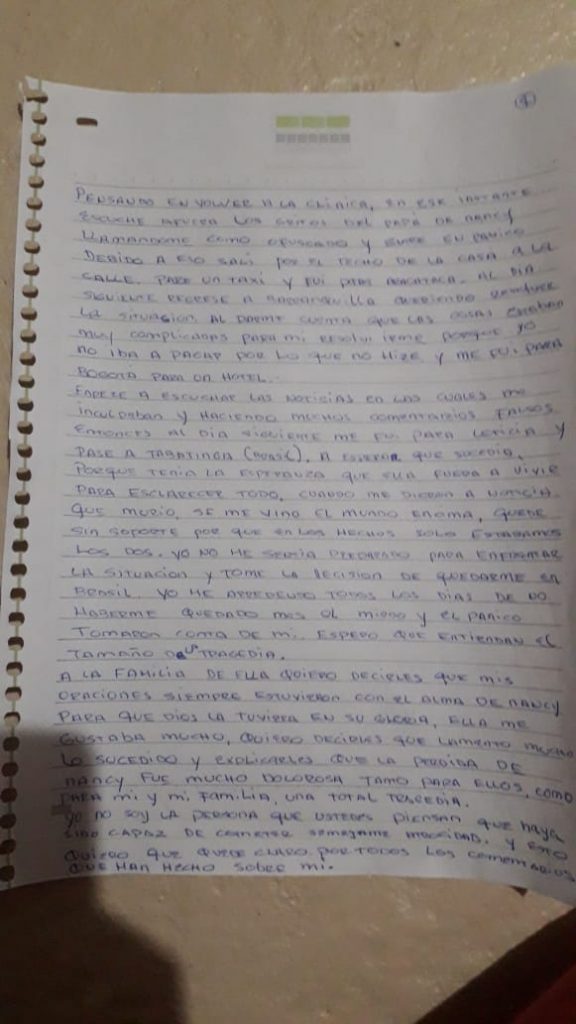 4
PENSANDO EN VOLVER A LA CLINICA, EN ESE INSTANTE
ESCUCHE AFUERA LOS GRITOS DEL PAPÁ DE NANCY
LLAMANDOME COMO OFUSCADO Y ENTRE EN PANICO
DEBIDO A ESO SALI POR EL TECHO DE LA CASA A LA
CALLE. PARE UN TAXI Y FUI PARA ARACATACA. AL DIA
SIGUIENTE REGRESE A BARRANQUILLA QUERIENDO
LA SITUASION AL DARME CUENTA QUE LAS COSAS ESTABAN
MUY COMPLICADAS PARA MI RESOLVI IRME PORQUE YO
NO IBA A PAGAR POR LO QUE NO HIZE Y ME FUI PARA
BOGOTÁ PARA UN HOTEL.
EMPECE A ESCUCHAR LAS NOTICIAS EN LAS CUALES ME
INCULPABAN Y HACIENDO MUCHOS COMENTARIOS FALSOS.
ENTONCES AL DIA SIGUIENTE ME FUI PARA LETICIA Y
PASE A TABATINGA (BRASIL), A ESPERAR QUE SUCEDIA,
PORQUE TENIA LA ESPERANZA QUE ELLA FUERA A VIVIR
PARA ESCLARECER TODO, CUANDO ME DIERON A NOTICIA
QUE MURIO, SE ME VINO EL MUNDO ENCIMA, QUEDE
SIN SOPORTE POR QUE EN LOS HECHOS SOLO ESTABAMOS
LOS DOS. YO NO ME SENTIA PREPARADO PARA ENFRENTAR
LA SITUACION Y TOME LA DECISION DE QUEDARME EN
BRASIL. YO ME ARREPIENTO TODOS LOS DIAS DE NO
HABERME QUEDADO MAS EL MIEDO Y EL PANICO
TOMARON CONTA DE MI. ESPERO QUE ENTIENDAN EL
TAMAÑO TRAGEDIA.
A LA FAMILIA DE ELLA QUIERO DECIRLES QUE MIS
ORACIONES SIEMPRE ESTUVIERON CON EL ALMA DE NANCY
PARA QUE DIOS LA TUVIERA EN SU GLORIA, ELLA ME
GUSTABA MUCHO, QUIERO DECIRLES QUE LAMENTO MUCHO
LO SUCEDIDO Y EXPLICARLES QUE LA PERDIDA DE
NANCY FUE MUCHO DOLOROSA TANTO PARA ELLOS, COMO
PARA MI Y MI FAMILIA, UNA TOTAL TRAGEDIA.
YO NO SOY LA PERSONA QUE USTEDES PIENSAN QUE HAYA
SIDO CAPAZ DE COMETER SEMEJANTE ATROCIDAD. Y ESTO
QUIERO QUE QUEDE CLARO POR TODOS LOS COMENTARIOS
QUE HAN HECHO SOBRE MI.